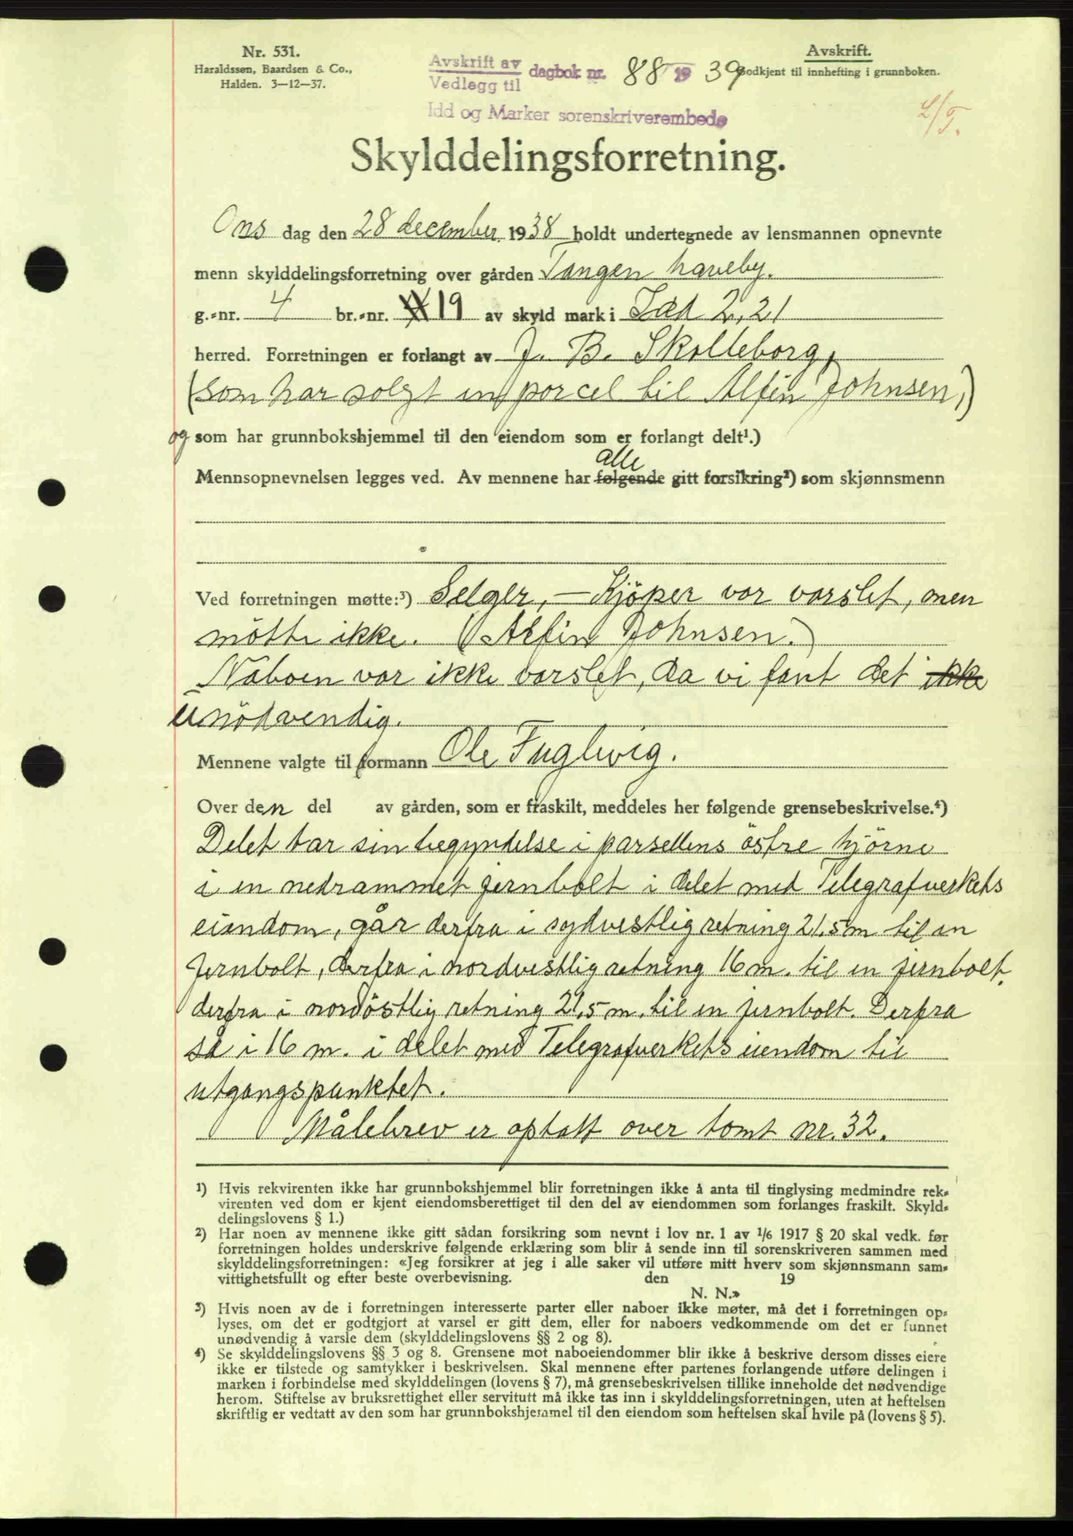 Nr. 531.
Haraldssen, Baardsen & Co.,
Halden. 3—12—37.
Avskrift av
Vedlegg til
dagbok nr. 88 1939
Idd og Marker sorenskriverembede
Avskrift.
Godkjent til innhefting i grunnboken.
Skylddelingsforretning.
Ons dag den 28 december 1938 holdt undertegnede av lensmannen opnevnte
menn skylddelingsforretning over gården Tangen haveby.
g.-nr. 4 br.-nr. 19 av skyld mark i Idd 2,21
herred. Forretningen er forlangt av J. B. Skolleborg,
(som har solgt en porcel til Alfin Johnsen,)
og som har grunnbokshjemmel til den eiendom som er forlangt delt¹.)
alle
Mennsopnevnelsen legges ved. Av mennene har følgende gitt forsikring²) som skjønnsmenn
Ved forretningen møtte:³) Selger, — Kjöper var varslet, men
mötte ikke. (Alfin Johnsen.)
Naboen var ikke varslet, da vi fant det ikke
unödvendig.
Mennene valgte til formann Ole Fuglevig.
Over den del av gården, som er fraskilt, meddeles her følgende grensebeskrivelse.⁴)
Delet tar sin begyndelse i parsellens östre hjörne
i en nedrammet jernbolt i delet med Telegrafverkets
eiendom, går derfra i sydvestlig retning 21,5 m til en
jernbolt, derfra i nordvestlig retning 16 m. til en jernbolt,
derfra i nordöstlig retning 21,5 m. til en jernbolt. Derfra
så i 16 m. i delet med Telegrafverkets eiendom til
utgangspunktet.
Målebrev er optatt over tomt nr. 32.
¹) Hvis rekvirenten ikke har grunnbokshjemmel blir forretningen ikke å anta til tinglysing medmindre rek-
virenten ved dom er kjent eiendomsberettiget til den del av eiendommen som forlanges fraskilt. Skyld-
delingslovens § 1.)
²) Har noen av mennene ikke gitt sådan forsikring som nevnt i lov nr. 1 av 1/6 1917 § 20 skal vedk. før
forretningen holdes underskrive følgende erklæring som blir å sende inn til sorenskriveren sammen med
skylddelingsforretningen: «Jeg forsikrer at jeg i alle saker vil utføre mitt hverv som skjønnsmann sam-
vittighetsfullt og efter beste overbevisning. den 19
N. N.»
³) Hvis noen av de i forretningen interesserte parter eller naboer ikke møter, må det i forretningen op-
lyses, om det er godtgjort at varsel er gitt dem, eller for naboers vedkommende om det er funnet
unødvendig å varsle dem (skylddelingslovens §§ 2 og 8).
⁴) Se skylddelingslovens §§ 3 og 8. Grensene mot naboeiendommer blir ikke å beskrive dersom disses eiere
ikke er tilstede og samtykker i beskrivelsen. Skal mennene efter partenes forlangende utføre delingen i
marken i forbindelse med skylddelingen (lovens § 7), må grensebeskrivelsen tillike inneholde det nødvendige
herom. Stiftelse av bruksrettighet eller servitutt må ikke tas inn i skylddelingsforretningen, uten at heftelsen
skriftlig er vedtatt av den som har grunnbokshjemmel til den eiendom som heftelsen skal hvile på (lovens § 5).